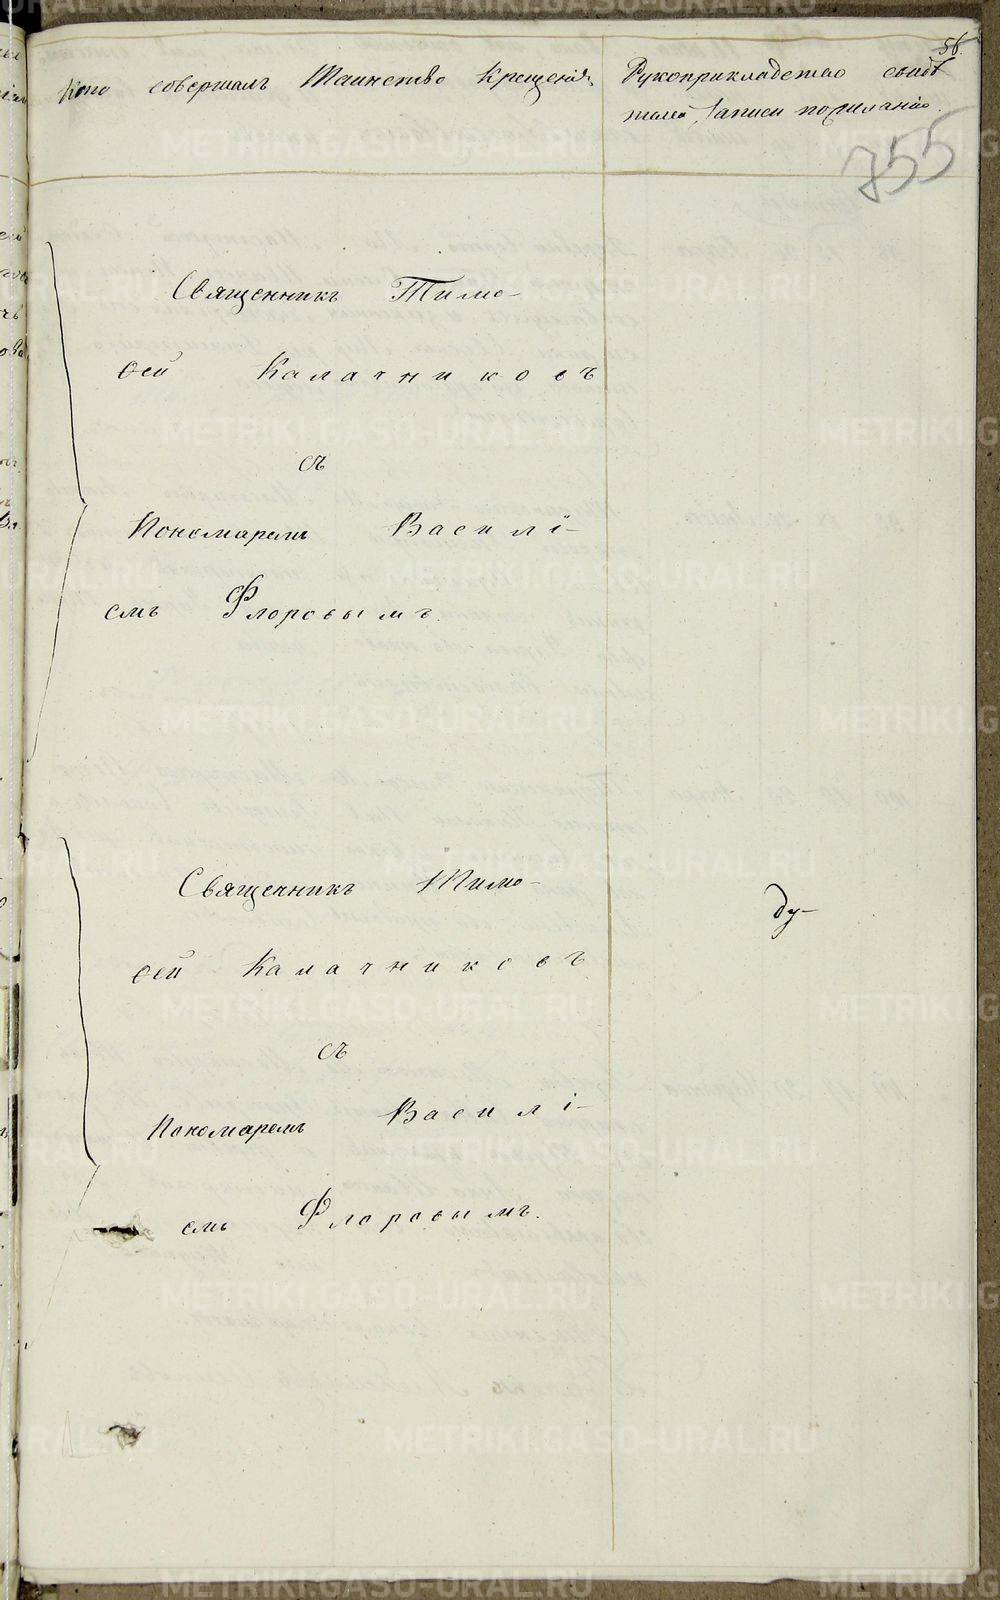 56.
Кто совершалъ Таинство Крещенія.
Рукоприкладство свидѣ
телей записи по желанію.
755
Священникъ Тимо-
ѳей Калачниковъ
съ
Пономаремъ Василі-
емъ Флоровымъ.
Священникъ Тимо-
ѳей Калачниковъ
съ
Пономаремъ Василі-
емъ Флоровымъ.
ду-
METRIKI.GASO-URAL.RU